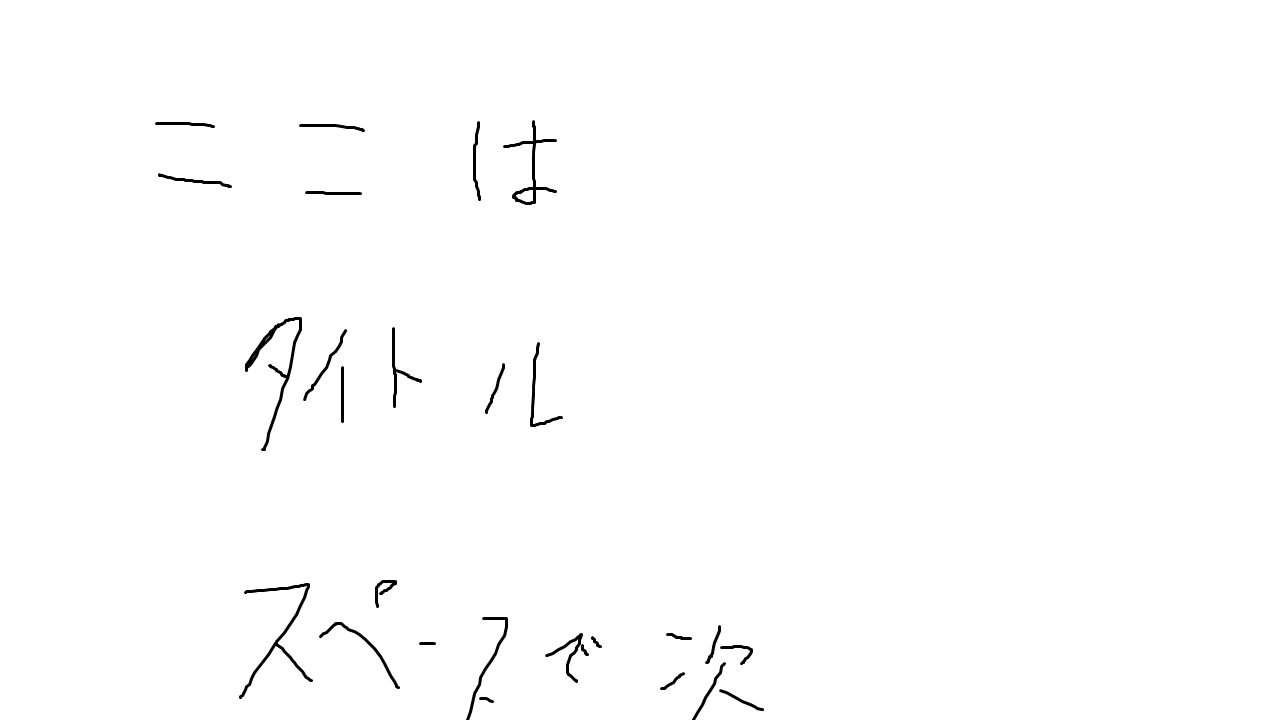 ここは
タイトル
スペースで次